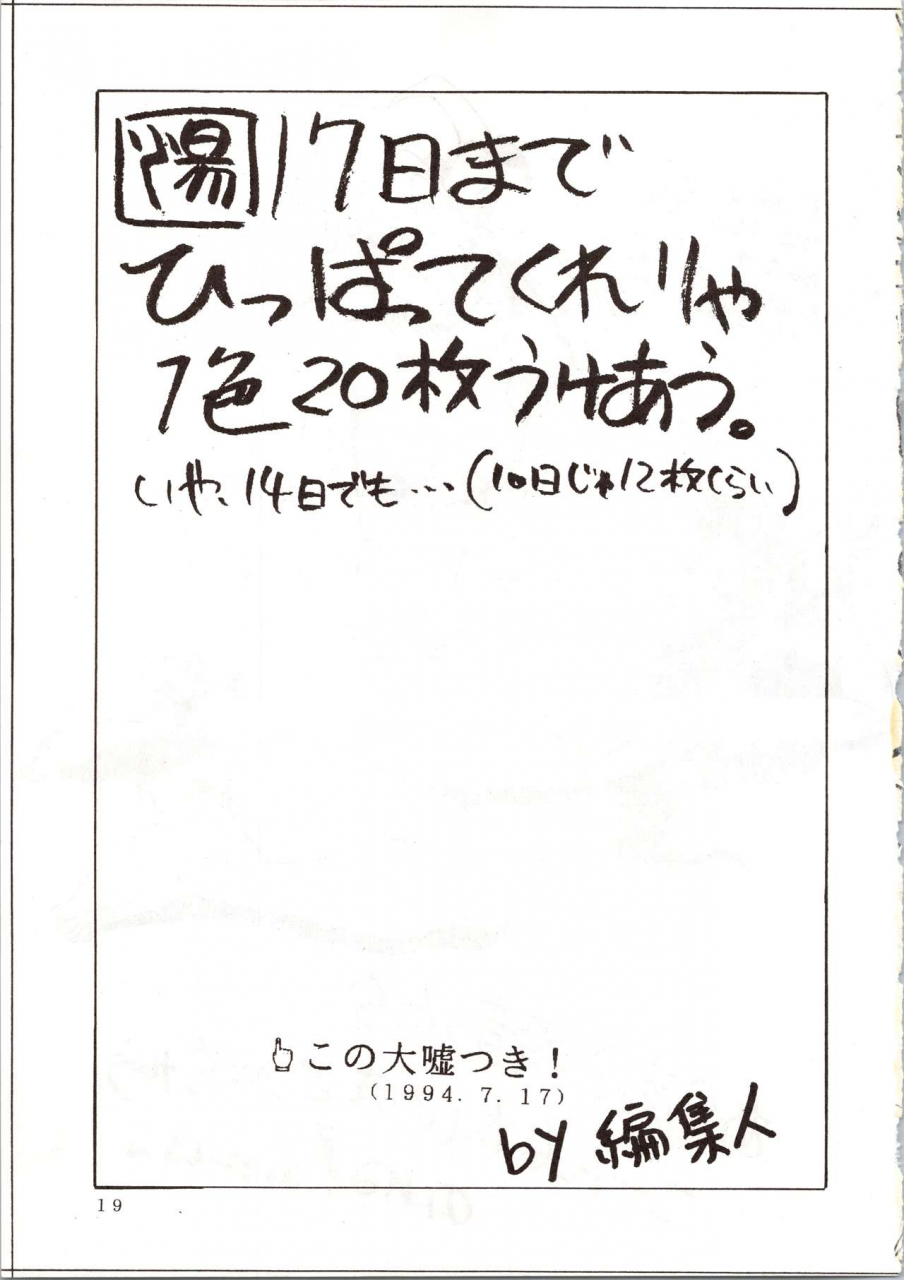 陽 17日まで
ひっぱってくれりゃ
1色20枚うけあう。
いや、14日でも…(10日じゃ12枚くらい)
☝この大嘘つき!
(1994.7.17)
by 編集人
19